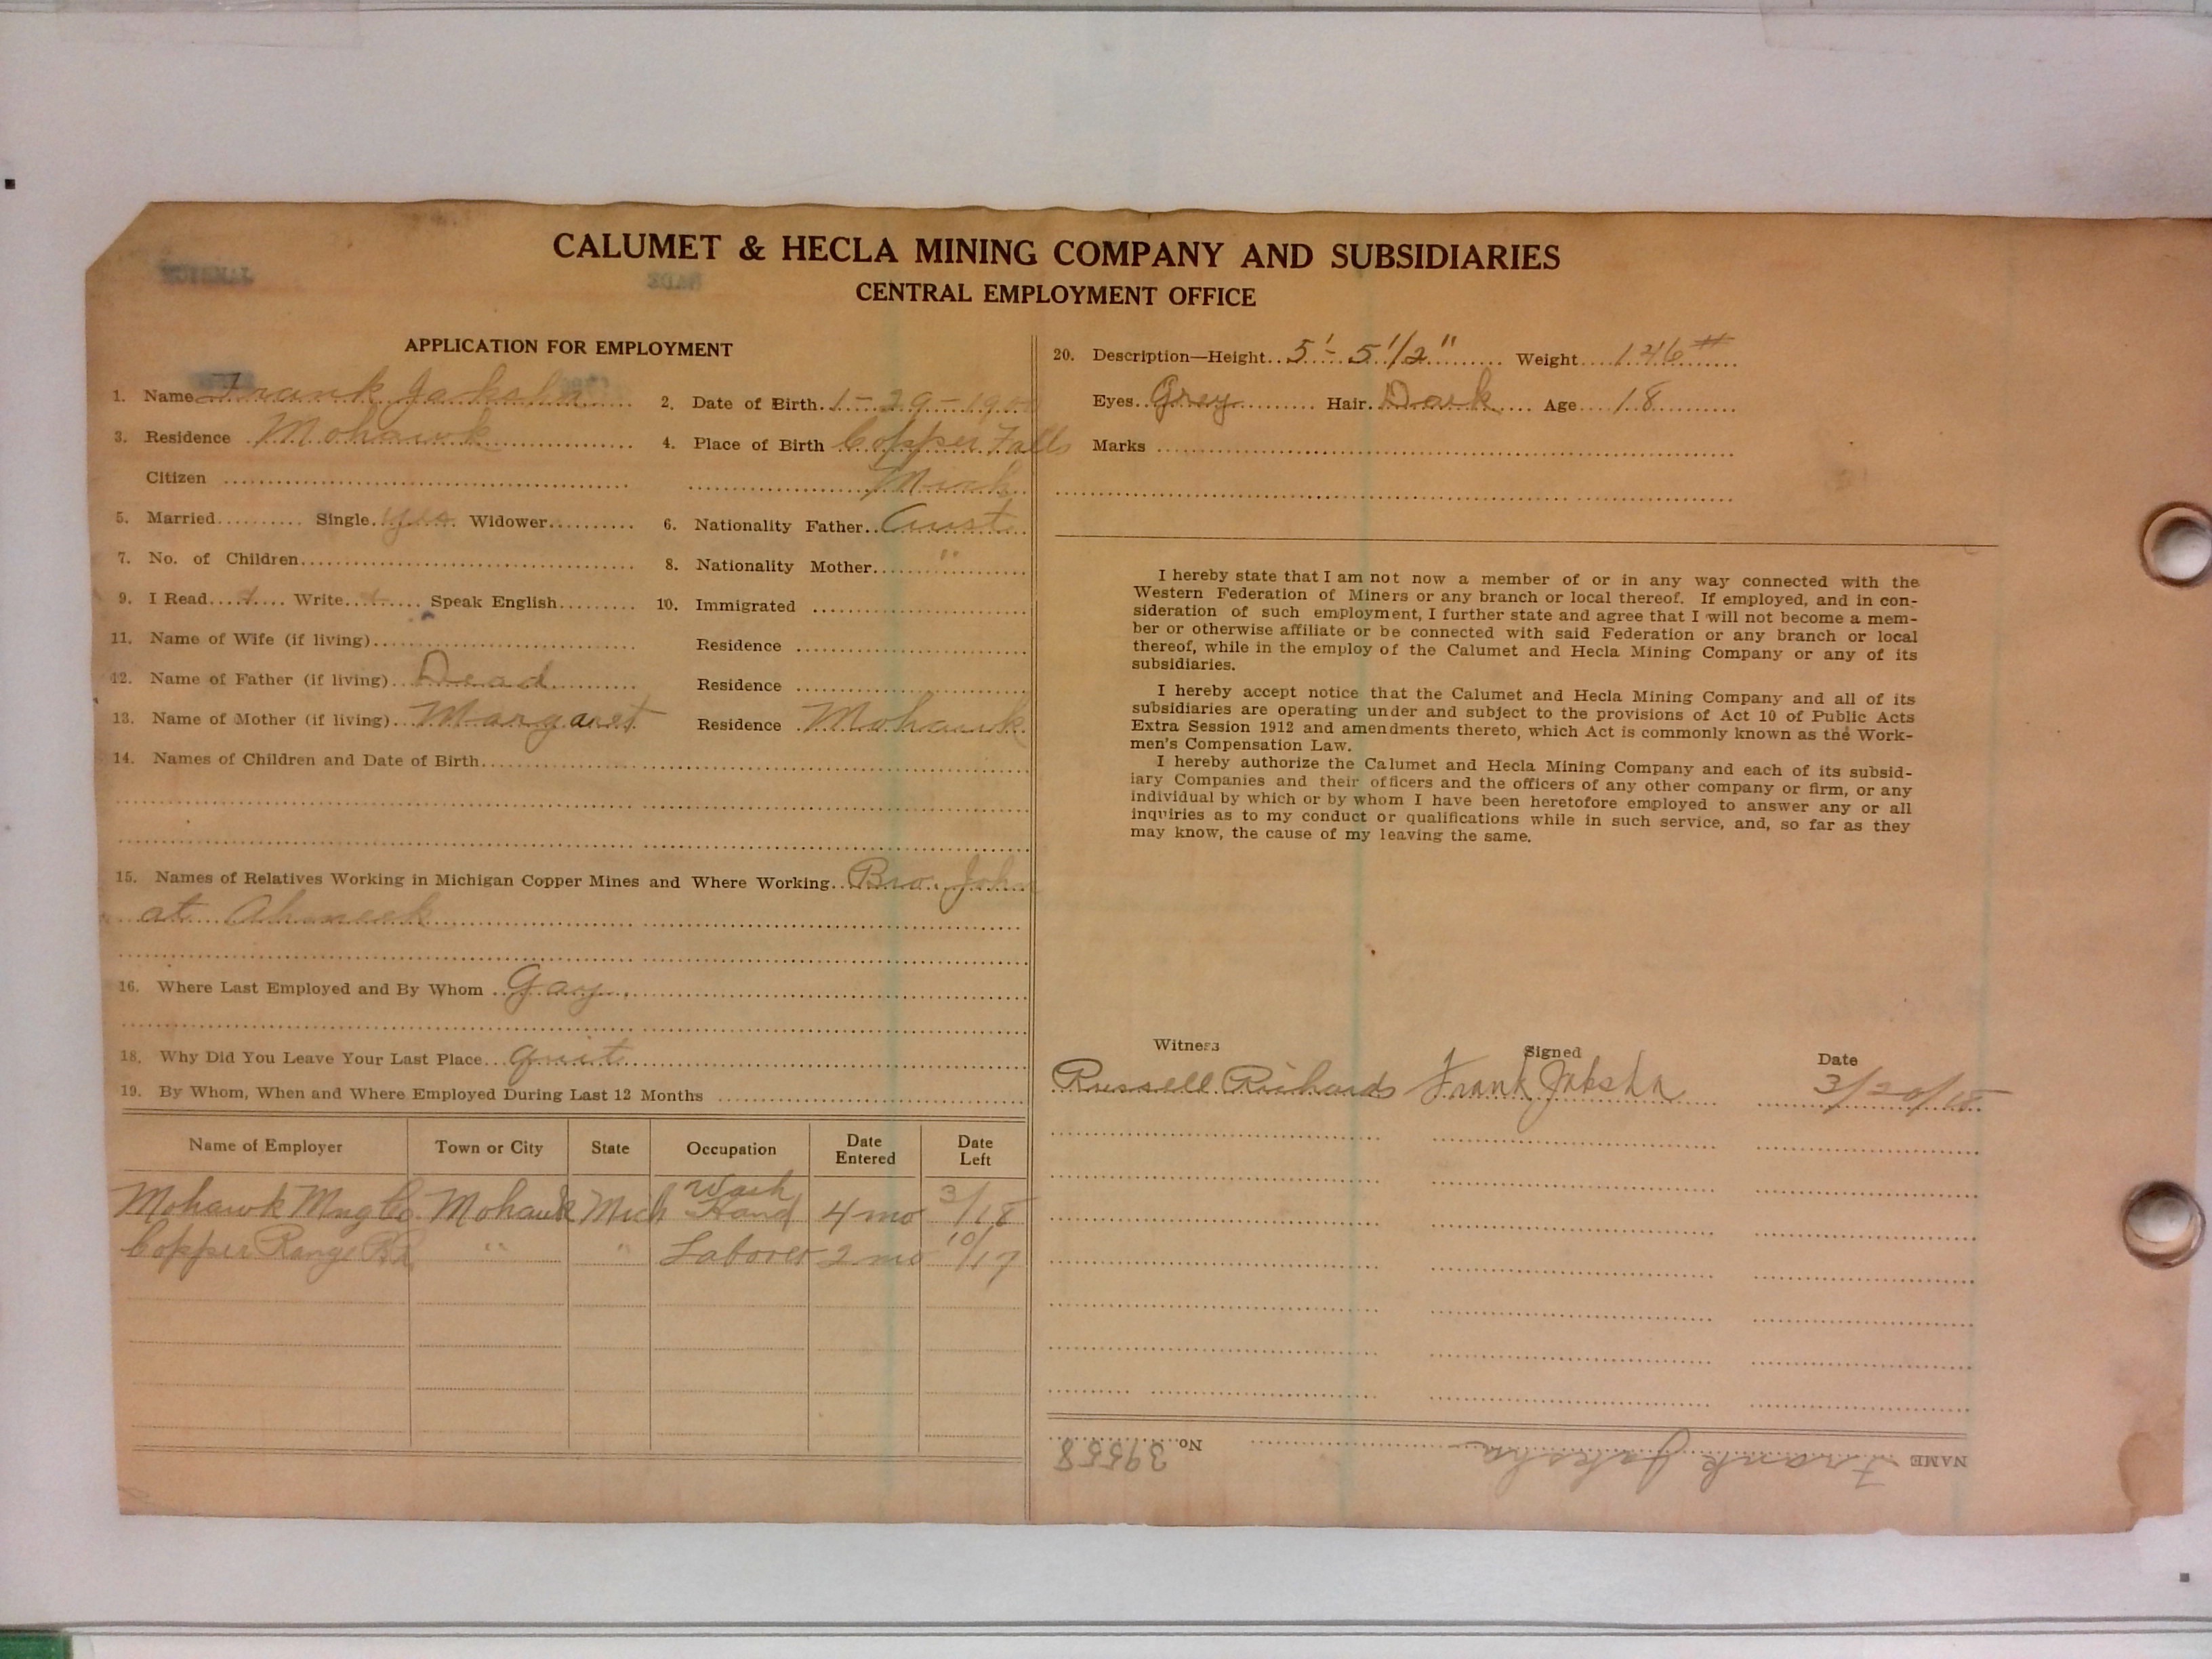 CALUMET & HECLA MINING COMPANY AND SUBSIDIARIES
CENTRAL EMPLOYMENT OFFICE
APPLICATION FOR EMPLOYMENT
1. Name Frank Jaksha 2. Date of Birth 1-29-1900
3. Residence Mohawk 4. Place of Birth Copper Falls
Citizen Mich
5. Married Single yes Widower 6. Nationality Father Aust
7. No. of Children 8. Nationality Mother "
9. I Read Write Speak English 10. Immigrated
11. Name of Wife (if living) Residence
12. Name of Father (if living) Dead Residence
13. Name of Mother (if living) Margaret Residence Mohawk
14. Names of Children and Date of Birth
15. Names of Relatives Working in Michigan Copper Mines and Where Working Bro. John
at Ahmeek
16. Where Last Employed and By Whom Gay
18. Why Did You Leave Your Last Place quit
19. By Whom, When and Where Employed During Last 12 Months
Name of Employer Town or City State Occupation Date Entered Date Left
Mohawk Mng Co Mohawk Mich Wash Hand 4 mo 3/18
Copper Range RR " " Laborer 2 mo 10/17
20. Description—Height 5'-5 1/2" Weight 146#
Eyes Grey Hair Dark Age 18
Marks
I hereby state that I am not now a member of or in any way connected with the
Western Federation of Miners or any branch or local thereof. If employed, and in con-
sideration of such employment, I further state and agree that I will not become a mem-
ber or otherwise affiliate or be connected with said Federation or any branch or local
thereof, while in the employ of the Calumet and Hecla Mining Company or any of its
subsidiaries.
I hereby accept notice that the Calumet and Hecla Mining Company and all of its
subsidiaries are operating under and subject to the provisions of Act 10 of Public Acts
Extra Session 1912 and amendments thereto, which Act is commonly known as the Work-
men's Compensation Law.
I hereby authorize the Calumet and Hecla Mining Company and each of its subsid-
iary Companies and their officers and the officers of any other company or firm, or any
individual by which or by whom I have been heretofore employed to answer any or all
inquiries as to my conduct or qualifications while in such service, and, so far as they
may know, the cause of my leaving the same.
Witness Signed Date
Russell Richards Frank Jaksha 3/20/18
NAME Frank Jaksha No. 39558